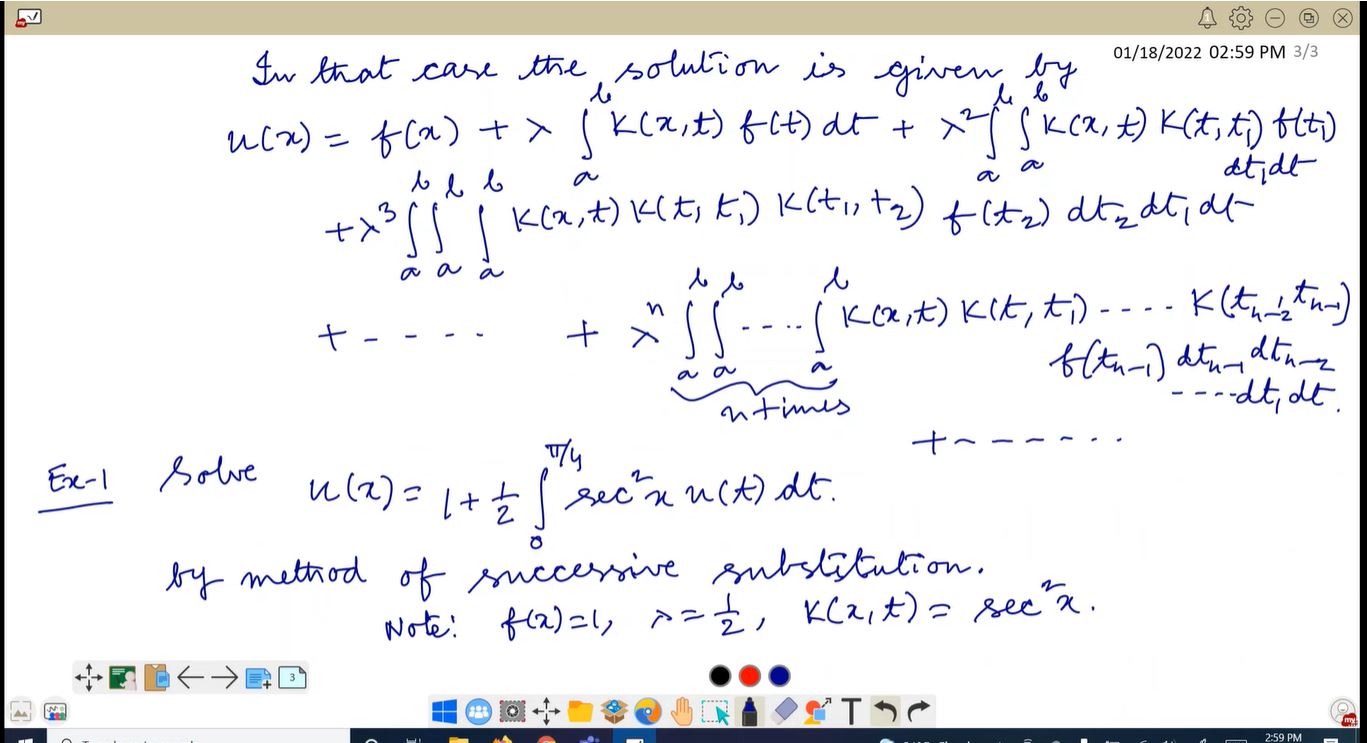 01/18/2022 02:59 PM 3/3
In that case the solution is given by
u(x) = f(x) + λ ∫_a^b K(x,t) f(t) dt + λ² ∫_a^b ∫_a^b K(x,t) K(t,t₁) f(t₁)
dt₁dt
+ λ³ ∫_a^b ∫_a^b ∫_a^b K(x,t) K(t,t₁) K(t₁,t₂) f(t₂) dt₂ dt₁ dt
+ - - - - + λⁿ ∫_a^b ∫_a^b ---- ∫_a^b K(x,t) K(t,t₁) ---- K(tₙ₋₂,tₙ₋₁)
f(tₙ₋₁) dtₙ₋₁ dtₙ₋₂
----dt₁ dt.
n times
+ - - - - - - -
Ex-1 Solve u(x) = 1 + 1/2 ∫_0^{π/4} sec²x u(t) dt.
by method of successive substitution.
Note: f(x)=1, λ=1/2, K(x,t) = sec²x.
3
T
2:59 PM